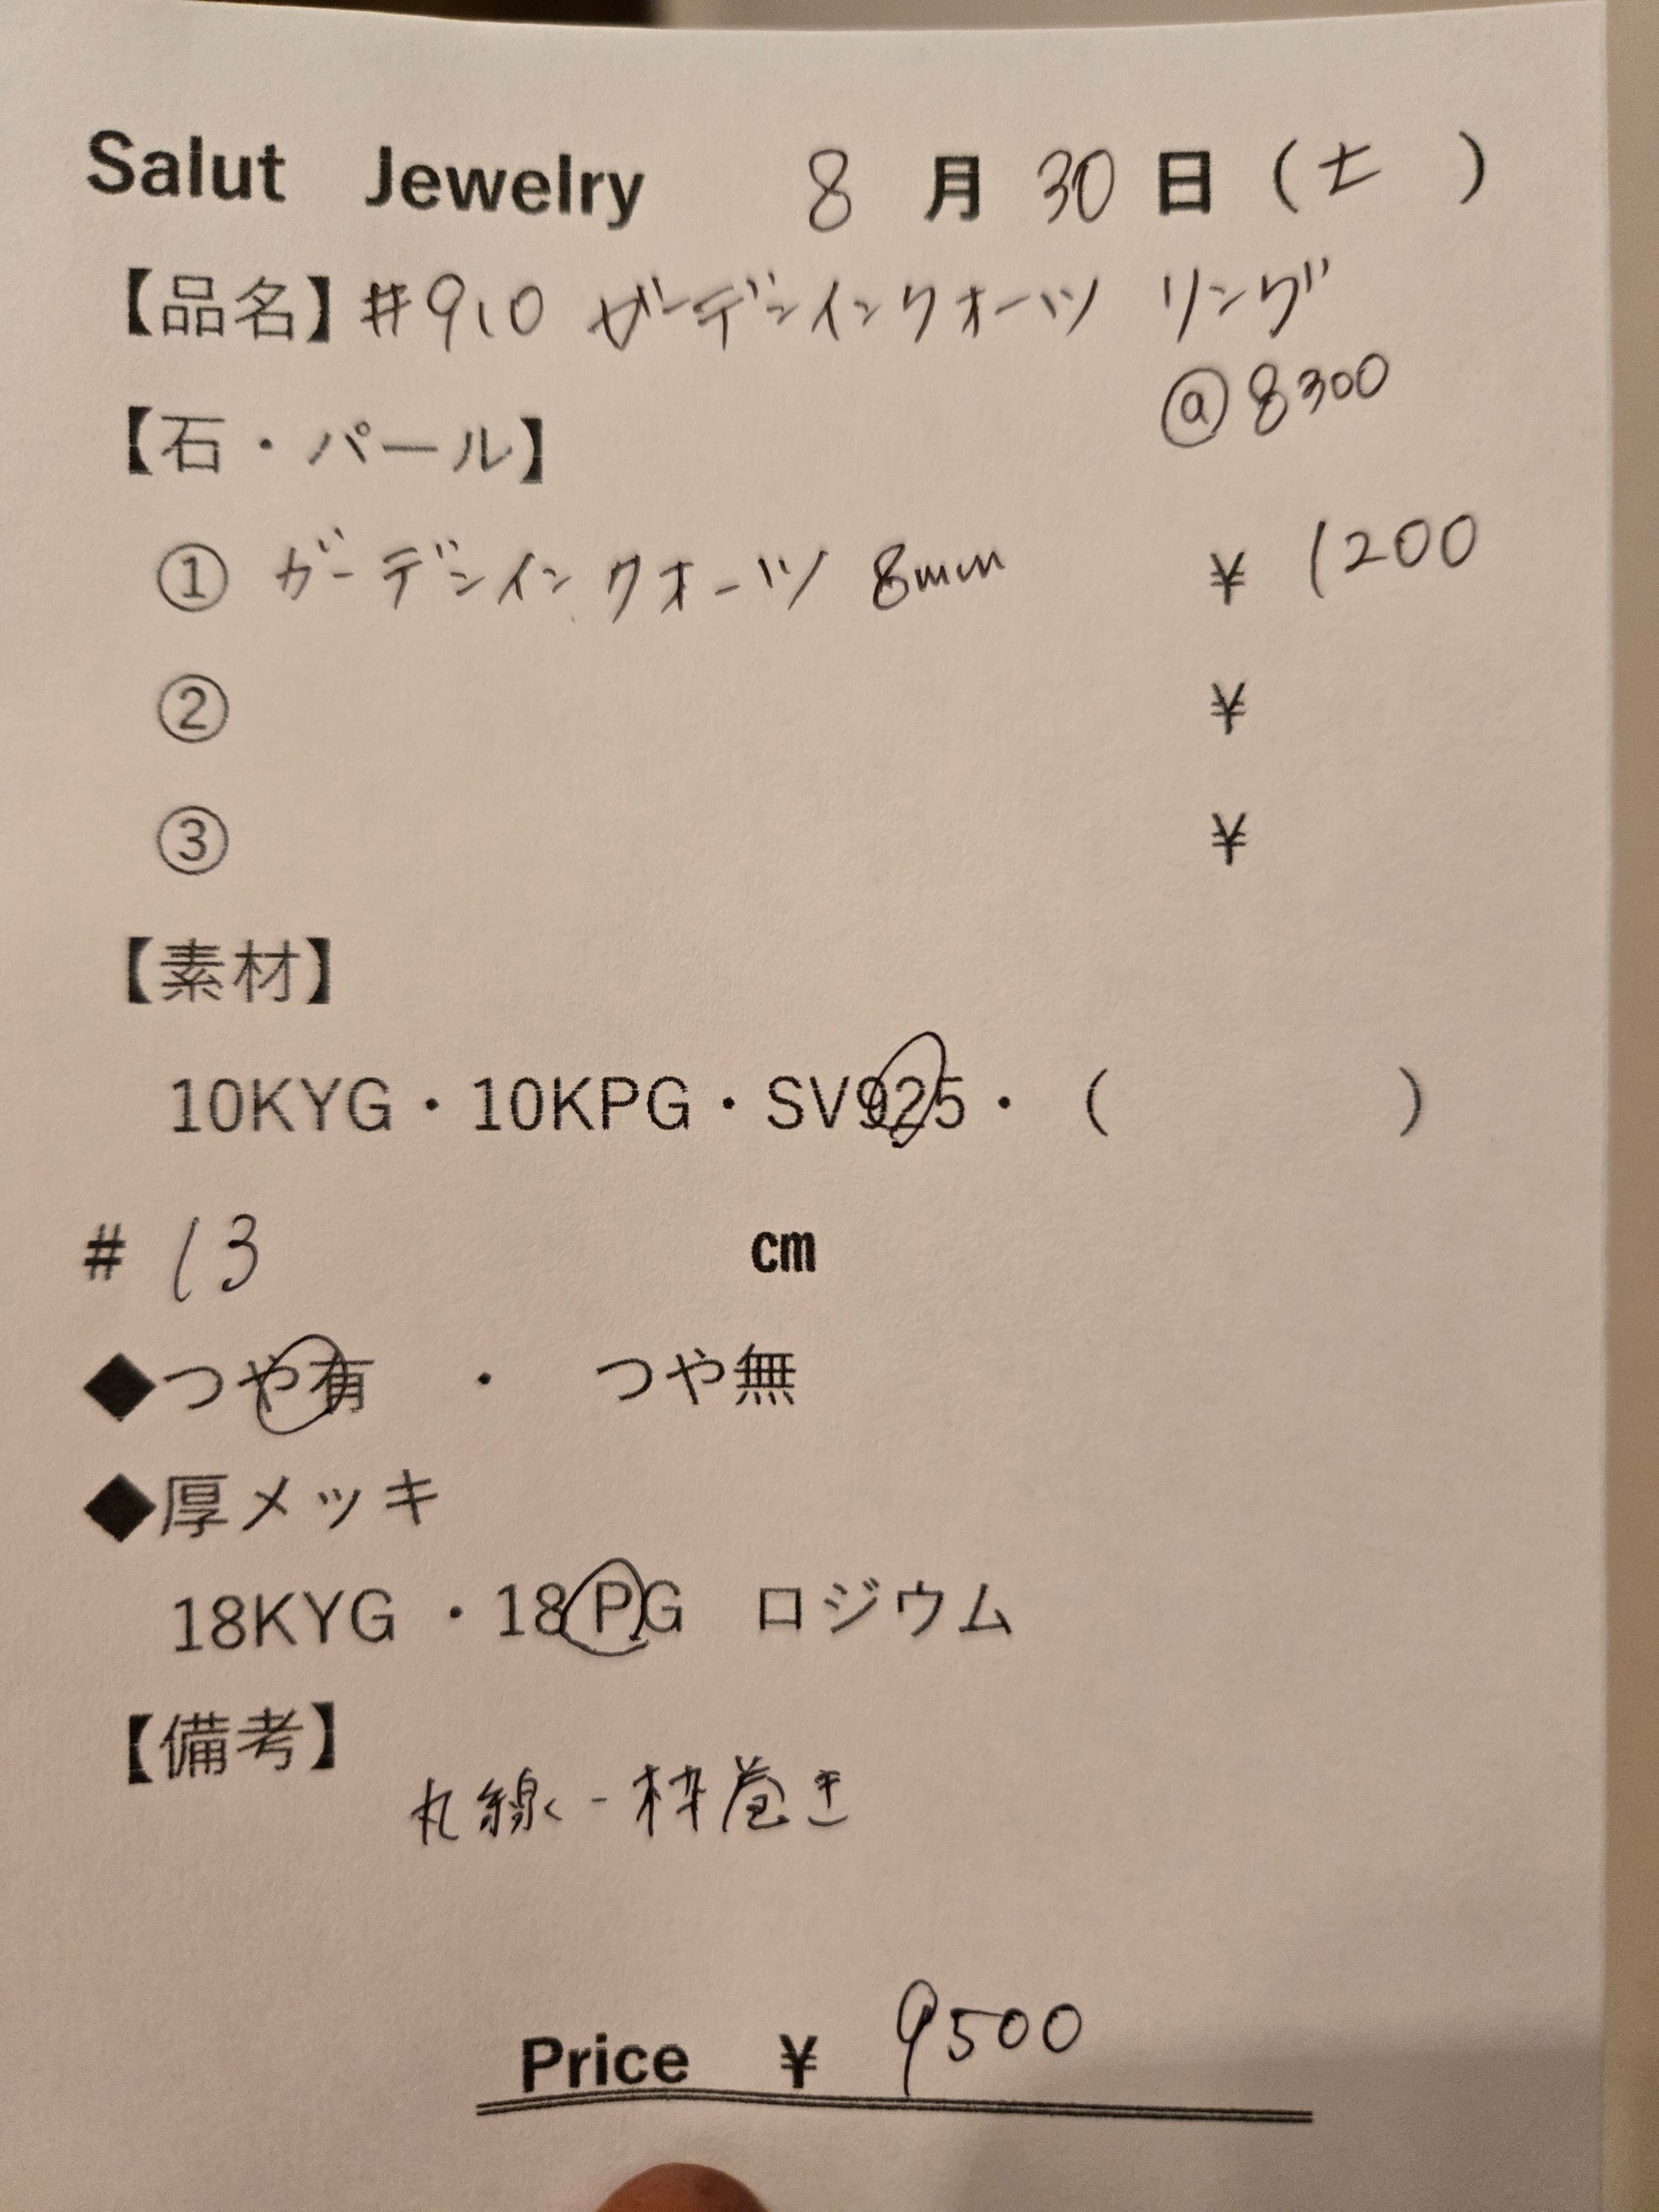 Salut Jewelry 8月30日(土)
【品名】#910 ガーデンインクォーツ リング
@8300
【石・パール】
① ガーデンインクォーツ 8mm ¥1200
② ¥
③ ¥
【素材】
10KYG・10KPG・SV925・( )
# 13 cm
◆つや有 ・ つや無
◆厚メッキ
18KYG ・18PG ロジウム
【備考】
丸線-枠巻き
Price ¥ 9500